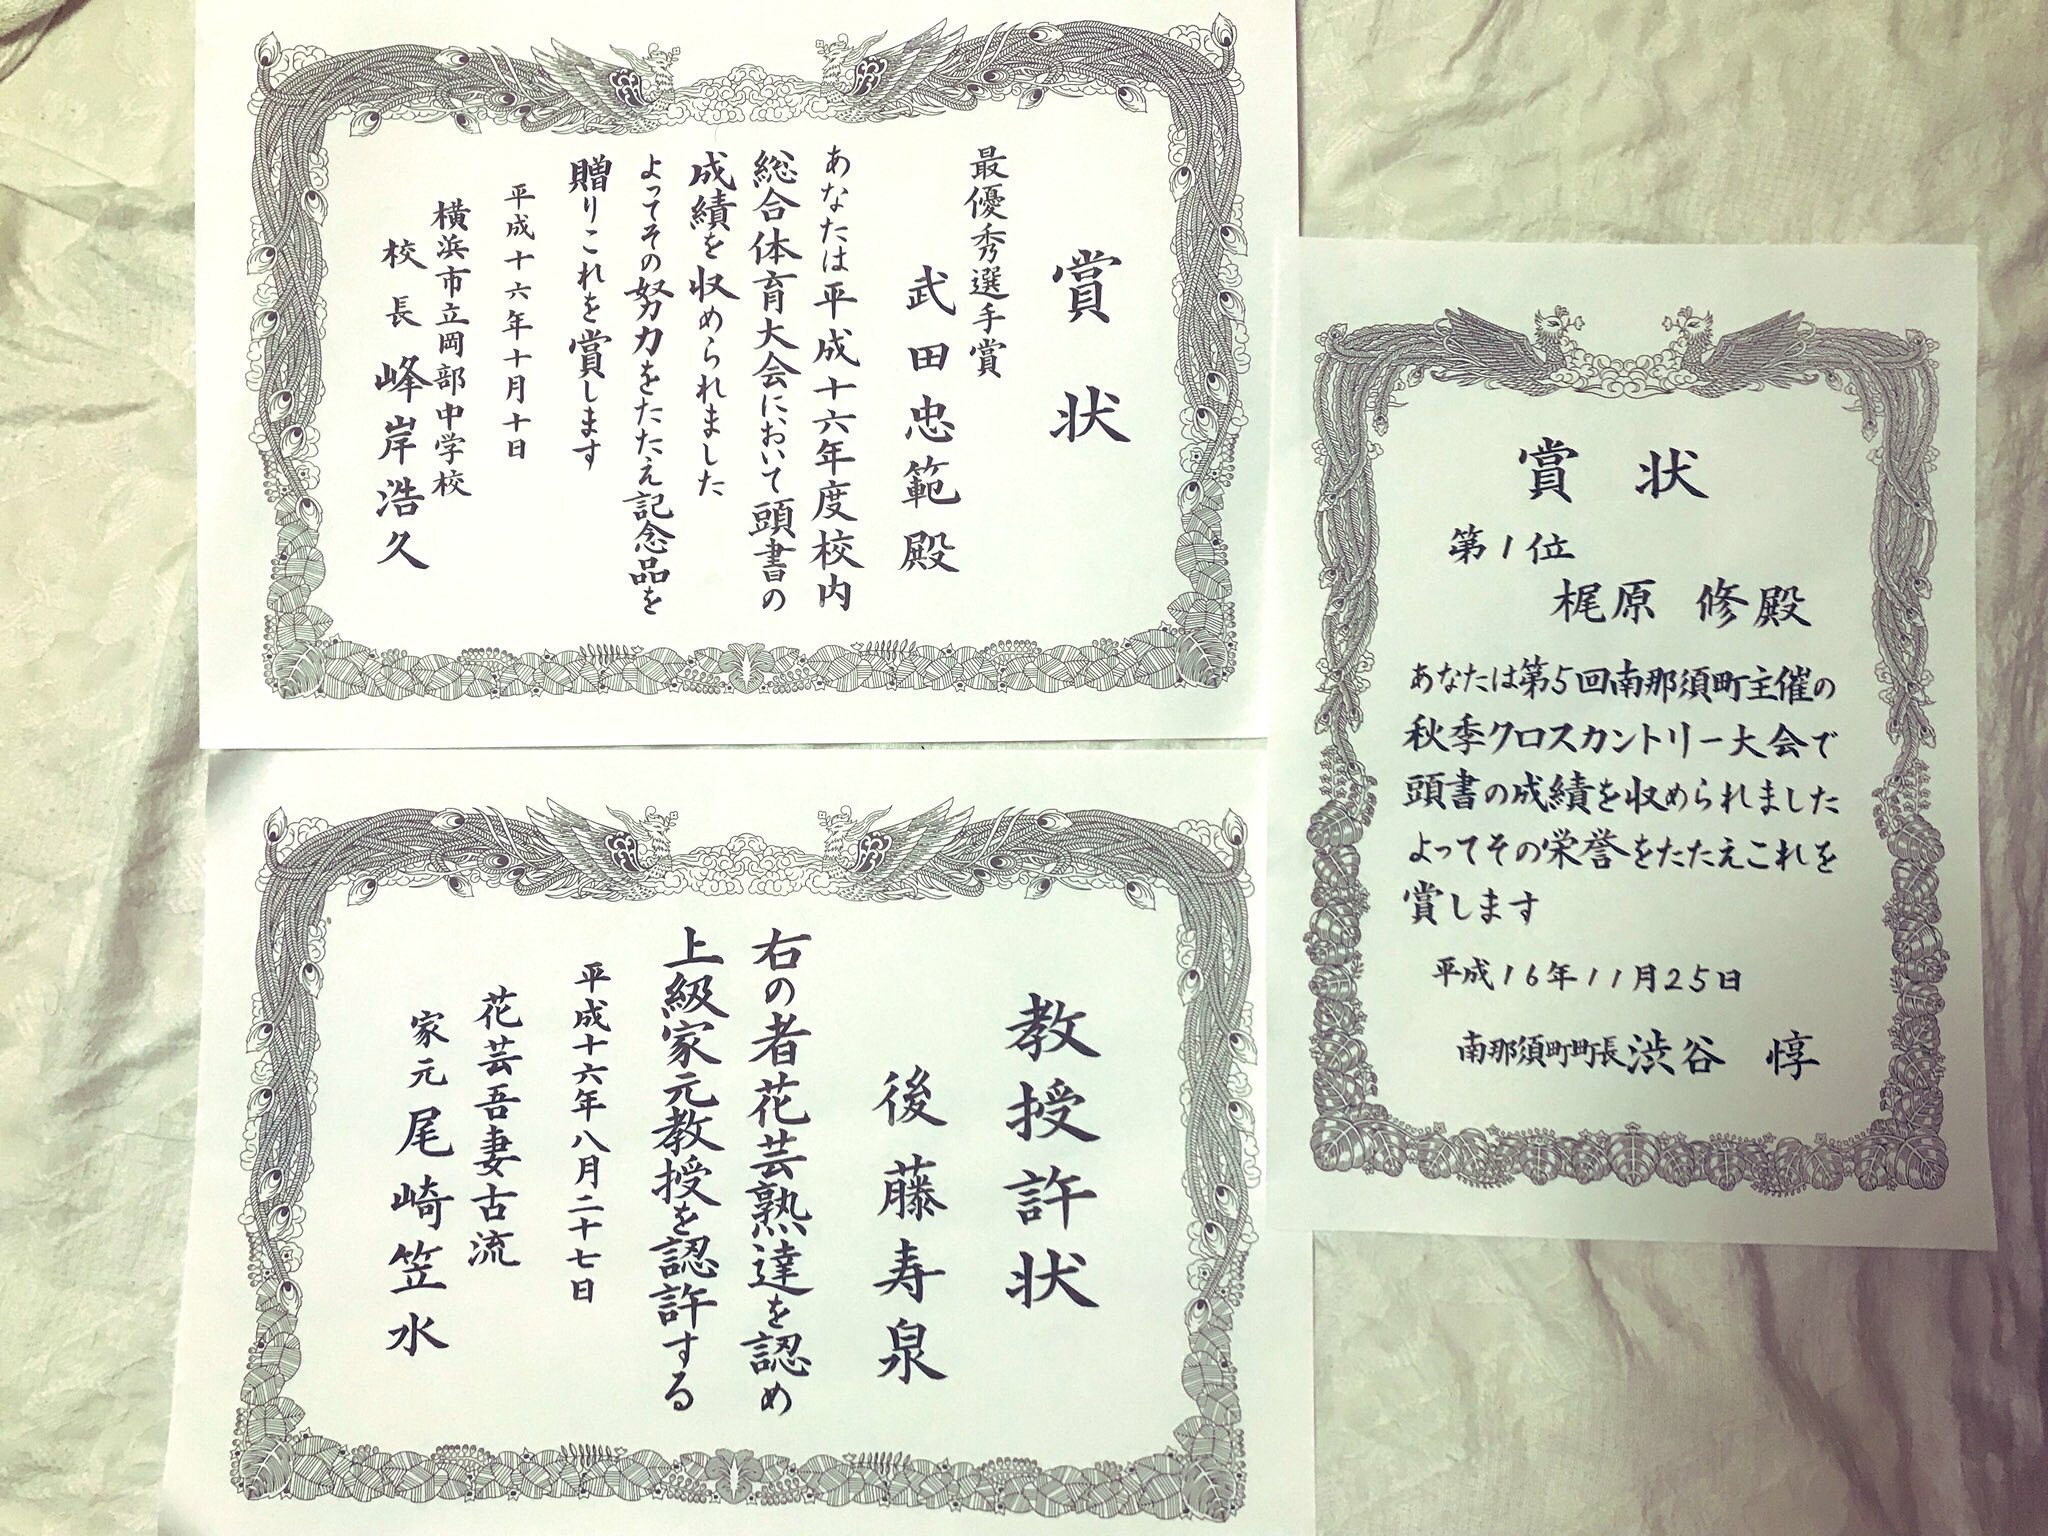 賞状
最優秀選手賞
武田忠範殿
あなたは平成十六年度校内
総合体育大会において頭書の
成績を収められました
よってその努力をたたえ記念品を
贈りこれを賞します
平成十六年十月十日
横浜市立岡部中学校
校長 峰岸浩久
賞状
第1位
梶原 修殿
あなたは第5回南那須町主催の
秋季クロスカントリー大会で
頭書の成績を収められました
よってその栄誉をたたえこれを
賞します
平成16年11月25日
南那須町町長 渋谷 惇
教授許状
後藤寿泉
右の者花芸熟達を認め
上級家元教授を認許する
平成十六年八月二十七日
花芸吾妻古流
家元 尾崎笠水